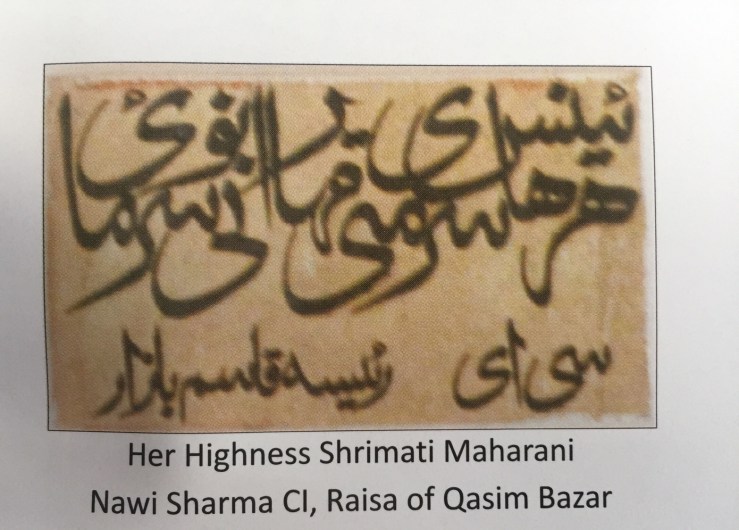 هر هائینس سری متی مهارانی سرما
سی ای رئیسه قاسم بازار
Her Highness Shrimati Maharani
Nawi Sharma CI, Raisa of Qasim Bazar